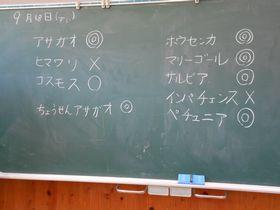 9月18日(火)
アサガオ ◎
ヒマワリ ×
コスモス ○
ちょうせんアサガオ ◎
ホウセンカ ◎
マリーゴール ◎
サルビア ◎
インパチェンス ×
ペチュニア ◎